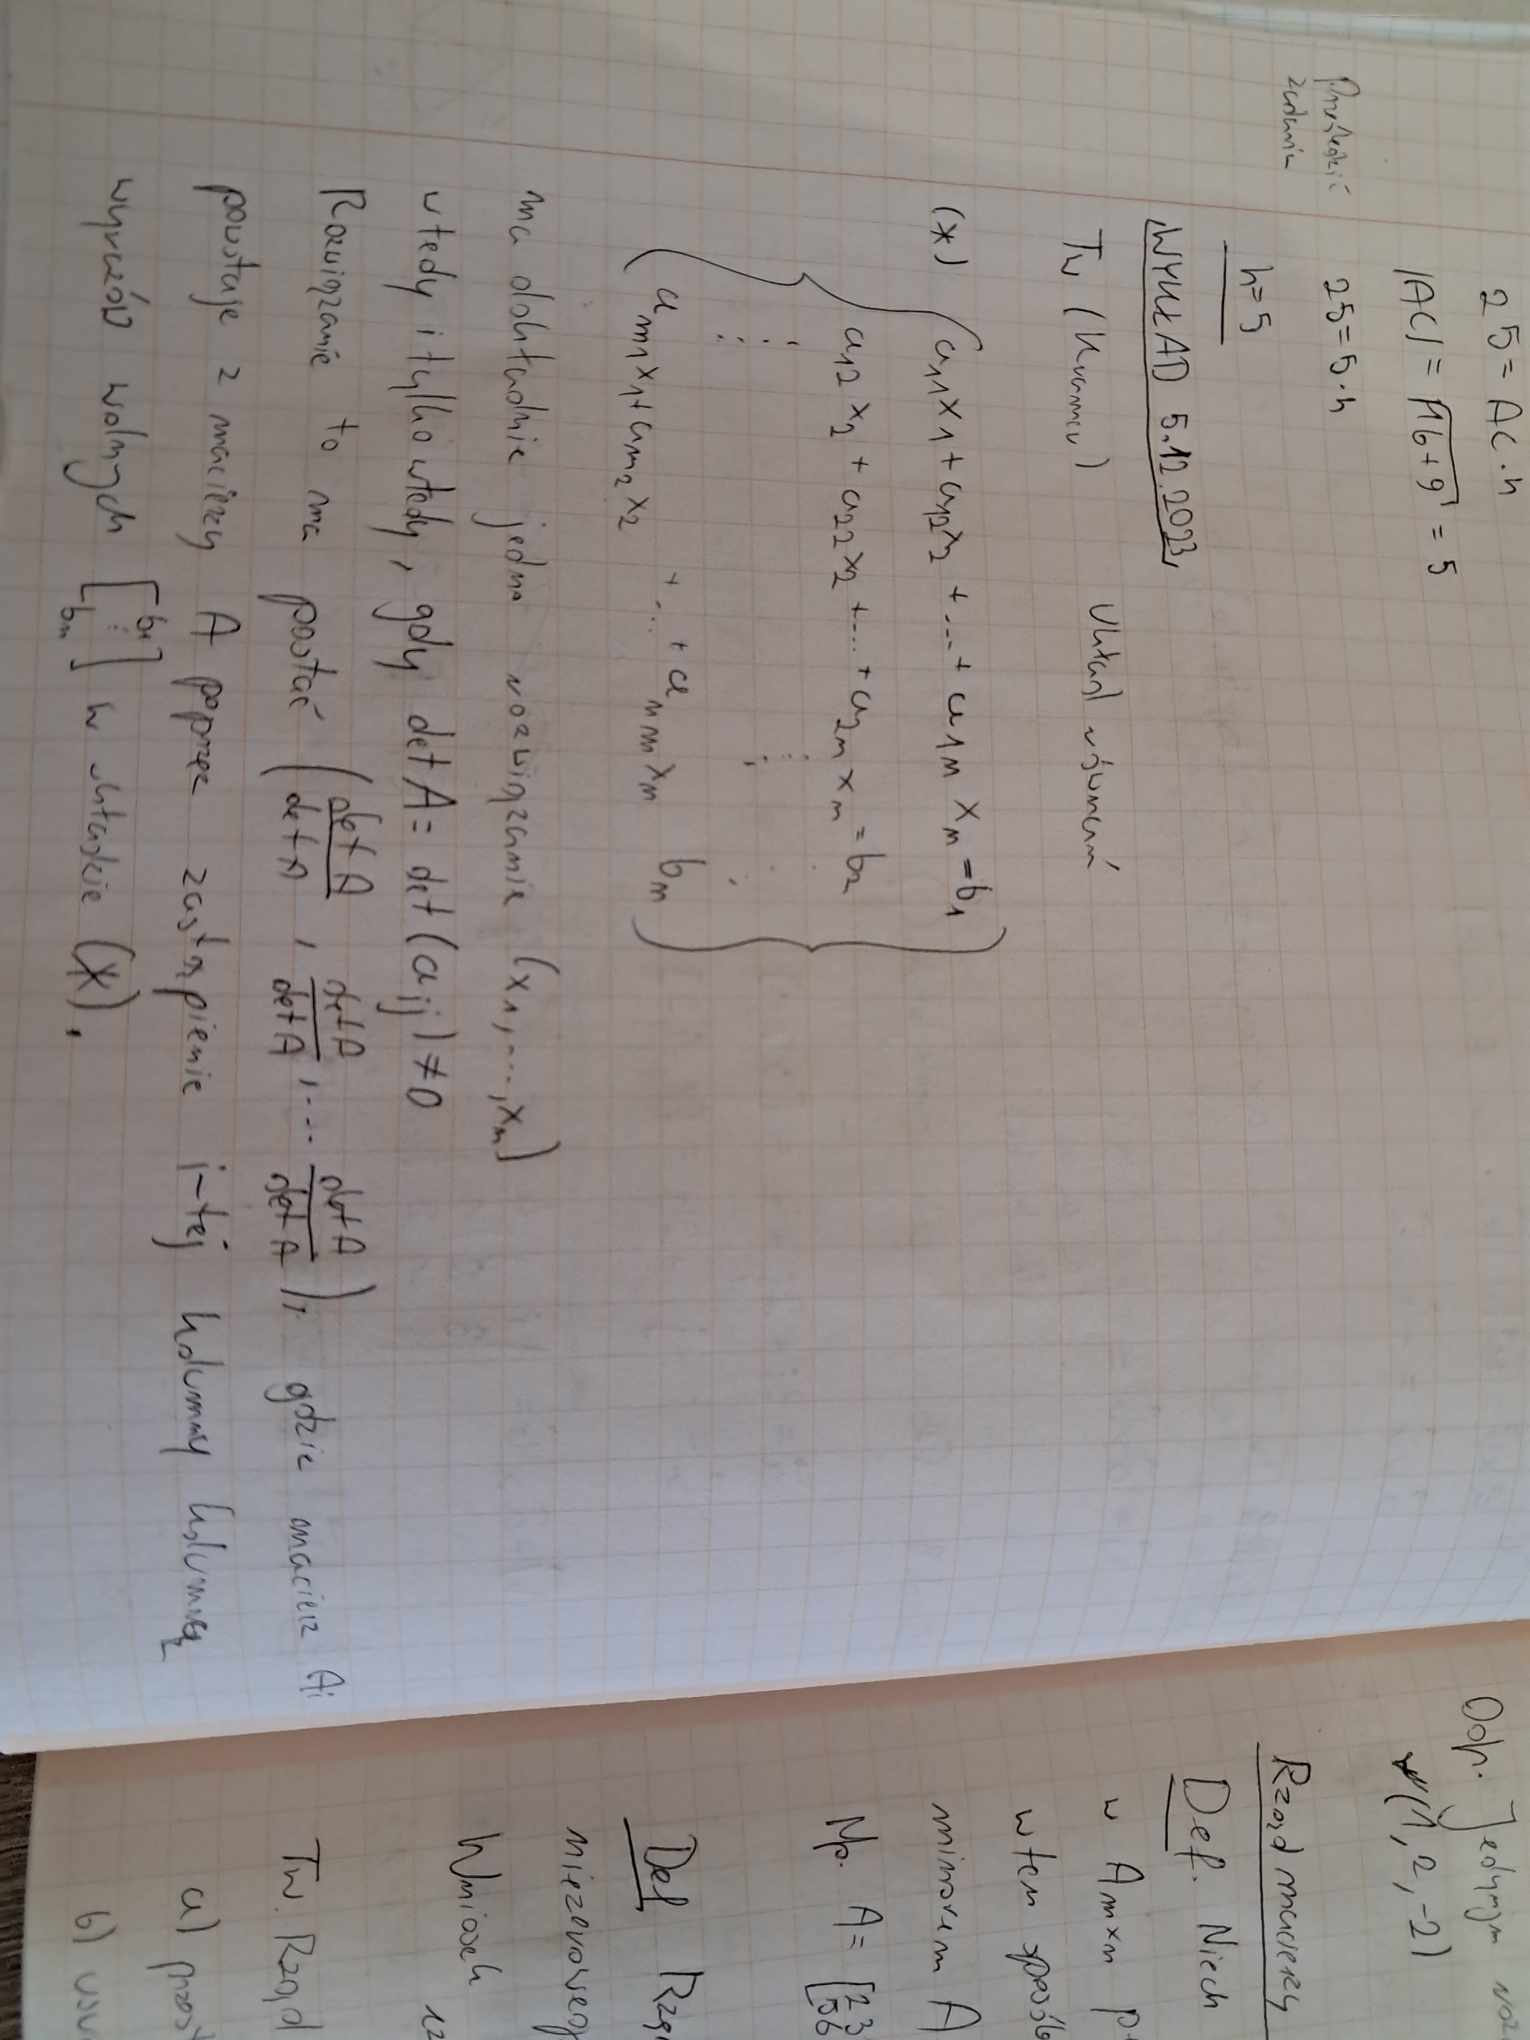 25 = AC · h
|AC| = √16+9 = 5
Prześledzić
zadania
25 = 5 · h
h = 5
WYKŁAD 5.12.2023,
Tw (Kramera) Układ równań
(*) { a11x1 + a12x2 + ... + a1m xm = b1
a12 x2 + a22 x2 + ... + a2m xm = b2
⋮ ⋮
am1x1 + am2 x2 + ... + amm xm bm
ma dokładnie jedno rozwiązanie (x1, ..., xm)
wtedy i tylko wtedy, gdy det A = det (aij) ≠ 0
Rozwiązanie to ma postać (det A / det A, det A / det A, ... det A / det A), gdzie macierz Ai
powstaje z macierzy A poprzez zastąpienie i-tej kolumny kolumną
wyrazów wolnych [b1 ⋮ bm] w układzie (*).
Odp. Jedynym
(1, 2, -2)
Rząd macierzy
Def. Niech
w Amxn
w ten
minorem A
Np. A = [2 3
5 6
Def
Wniosek
Tw. Rząd
a)
b)